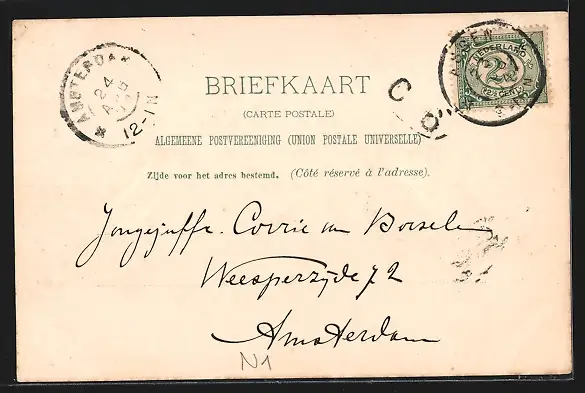 AMSTERDAM
24
AUG
12-1N
ASSEN
NEDERLAND
2½
(2½ CENT)
BRIEFKAART
(CARTE POSTALE)
ALGEMEENE POSTVEREENIGING (UNION POSTALE UNIVERSELLE)
Zijde voor het adres bestemd. (Côté réservé à l'adresse).
Jongejuffr. Corrie van Borselen
Weesperzijde 72
Amsterdam
N1